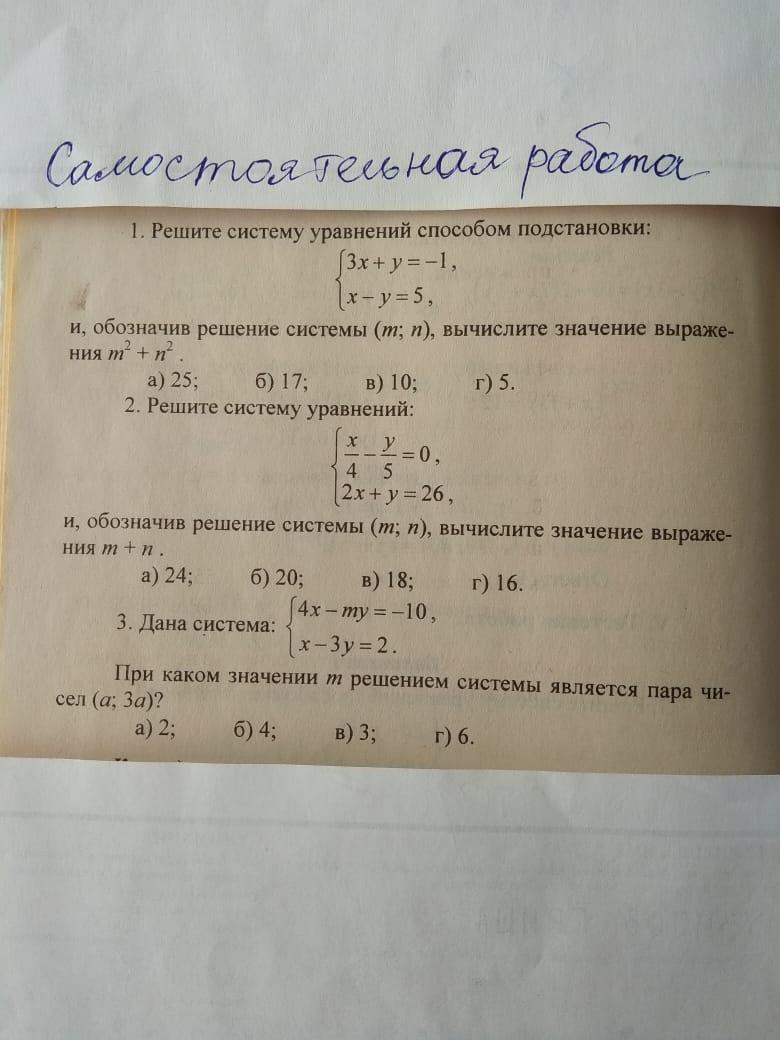 Самостоятельная работа
1. Решите систему уравнений способом подстановки:
{3x + y = −1,
x − y = 5,
и, обозначив решение системы (m; n), вычислите значение выраже-
ния m² + n² .
а) 25; б) 17; в) 10; г) 5.
2. Решите систему уравнений:
{x/4 − y/5 = 0,
2x + y = 26,
и, обозначив решение системы (m; n), вычислите значение выраже-
ния m + n .
а) 24; б) 20; в) 18; г) 16.
3. Дана система: {4x − my = −10,
x − 3y = 2.
При каком значении m решением системы является пара чи-
сел (a; 3a)?
а) 2; б) 4; в) 3; г) 6.